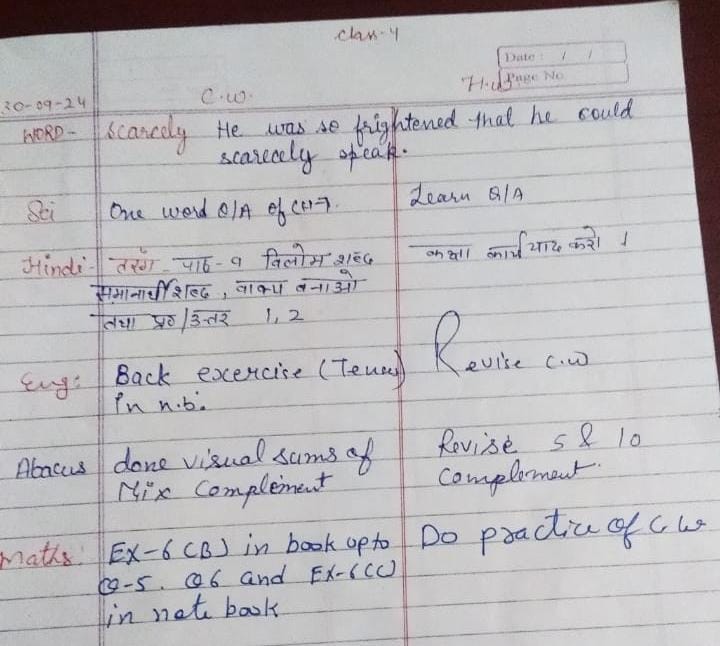 Class-4
Date : / /
Page No.
30-09-24 C.W. H.W
WORD- Scarcely He was so frightened that he could
scarecely speak.
Sci One word Q/A of CH-7. Learn Q/A
Hindi- तरंग - पाठ-9 विलोम शब्द कक्षा कार्य याद करो ।
समानार्थी शब्द, वाक्य बनाओ
तथा प्रश्न/उत्तर 1, 2
Eng: Back excercise (Tenses) Revise c.w
in n.b.
Abacus done visual sums of Revise 5 & 10
Mix Complement Complement.
Maths: EX-6 (B) in book upto Do practice of C.W
Q-5. Q6 and EX-6(C)
in note book